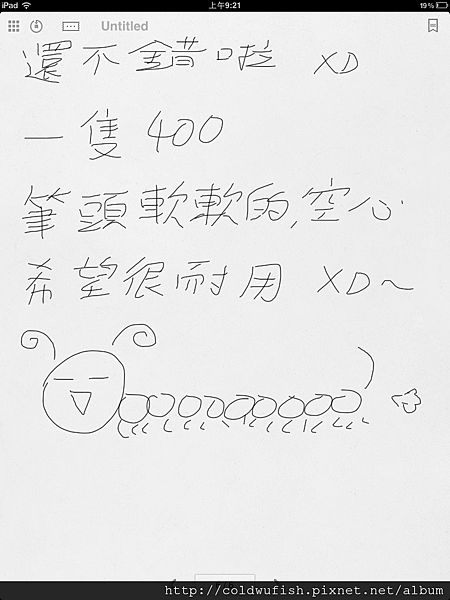 iPad 上午9:21 19%
Untitled
還不錯啦 XD
一隻 400
筆頭軟軟的,空心
希望很耐用 XD~
http://coldwufish.pixnet.net/album